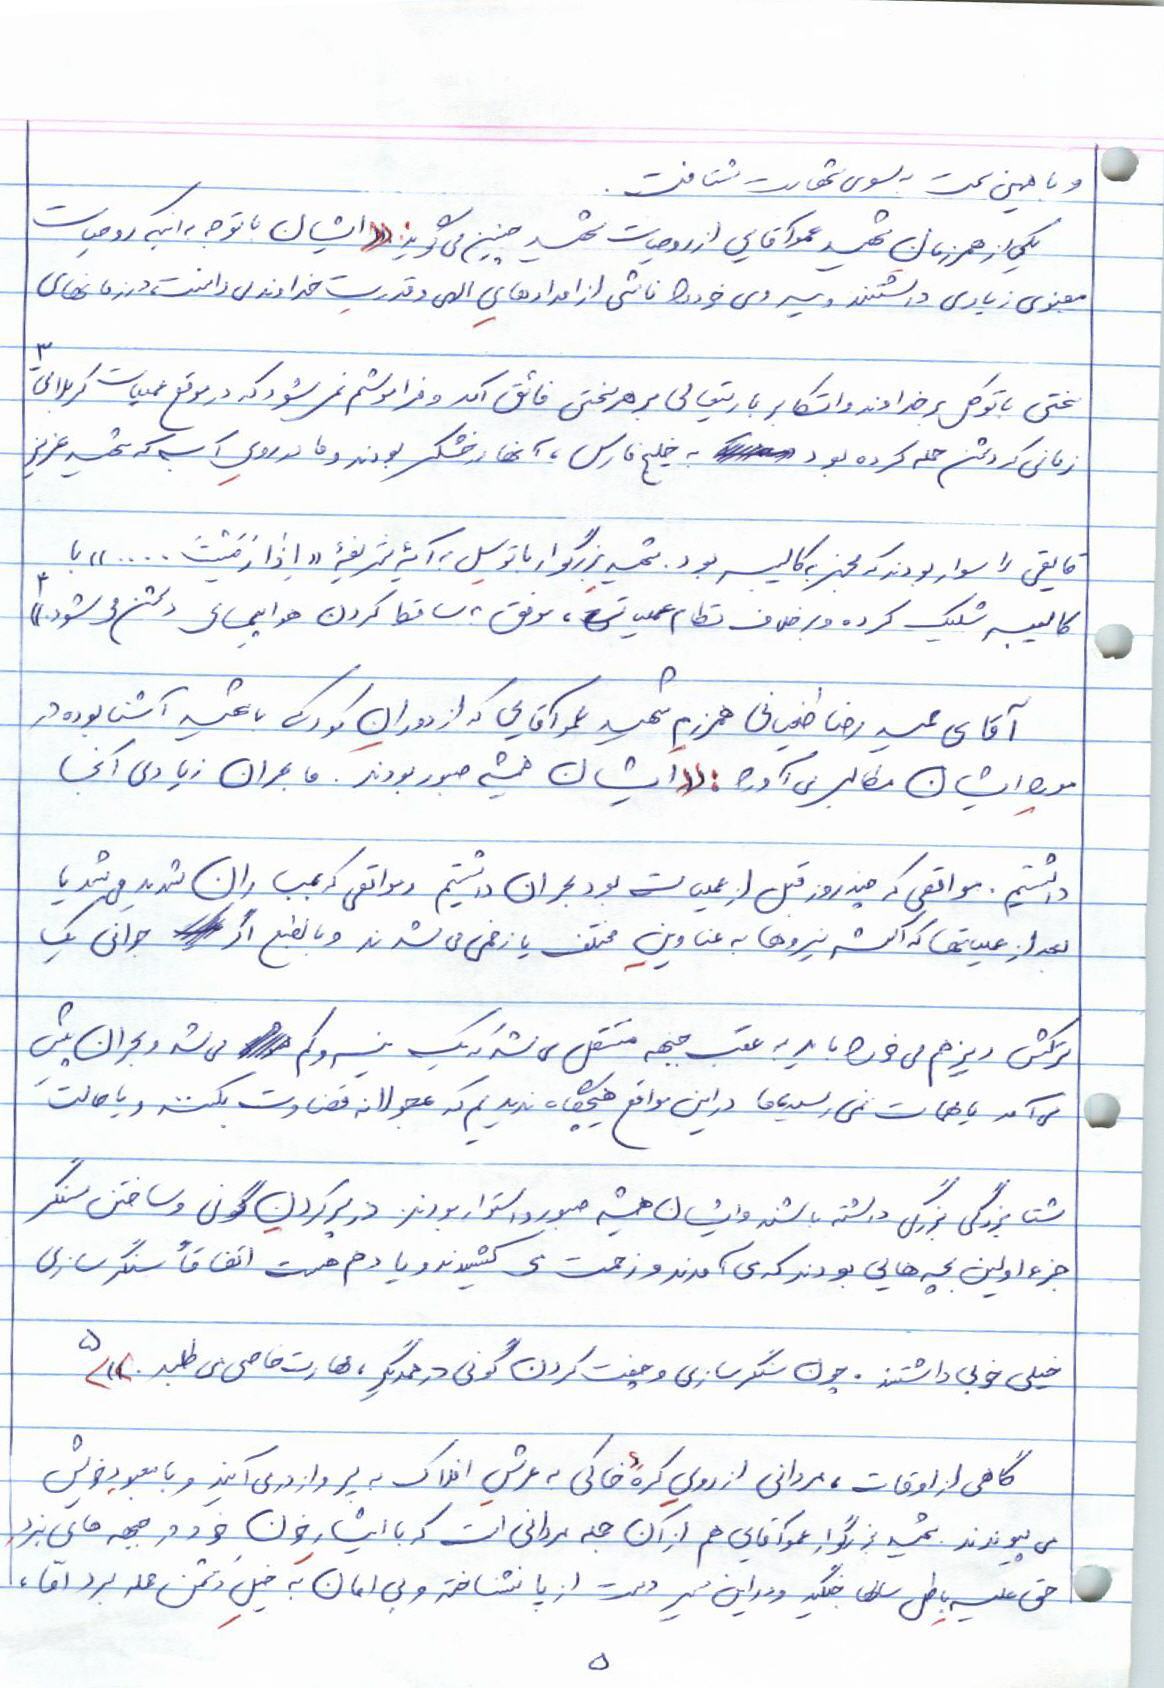 و با همین نیت به سوی شهادت شتافت.
یکی از همرزمان شهید عموآقایی از روحیات شهید چنین می گوید: «ایشان با توجه به اینکه روحیات
معنوی زیادی داشتند و پیروزی خود را ناشی از امدادهای الهی و قدرت خداوندی دانسته، در زمانهای
سختی با توکل بر خداوند و اتکا بر باریتعالی بر هر سختی فائق آمد و فراموشم نمی شود که در موقع عملیات کربلای ۳
زمانی که دشمن حمله کرده بود به خلیج فارس، آنها در خشکی بودند و ما در روی آب که شهید عزیز
قایقی را سوار بودند که مجهز به کالیبر بود. شهید بزرگوار با توسل به آیۀ شریفۀ «اِذا رَمَیْتَ ....» با
کالیبر شلیک کرده و برخلاف نظام عملیاتی، موفق به ساقط کردن هواپیمای دشمن می شود.»۴
آقای حمید رضا طغیانی همرزم شهید عموآقایی که از دوران کودکی با شهید آشنا بوده در
مورد ایشان مطالبی می آورد: «ایشان همیشه صبور بودند. ما بحران زیادی آنجا
داشتیم. مواقعی که چند روز قبل از عملیات بود بحران داشتیم و مواقعی که بمب باران شدید می شد یا
بعد از عملیاتها که اکثر نیروها به عناوین مختلف یا زخمی می شدند و بالطبع اگر جوانی یک
ترکش ریز هم می خورد باید به عقب جبهه منتقل می شد که یک نیرو کم می شد و بحران پیش
می آمد یا مهمات نمی رسید، اما در این مواقع هیچگاه ندیدیم که عجولانه قضاوت بکنند و یا حالت
شتابزدگی بزرگی داشته باشند و ایشان همیشه صبور و استوار بودند. در پر کردن گونی و ساختن سنگر
جزء اولین بچه هایی بودند که می آمدند و زحمت می کشیدند و یادم هست اتفاقاً سنگر سازی
خیلی خوبی داشتند. چون سنگر سازی و چفت کردن گونی در همدیگر، مهارت خاصی می طلبد.»۵
گاهی از اوقات، مردانی از روی کرۀ خاکی به عرش افلاک به پرواز در می آیند و با معبود خویش
می پیوندند. شهید بزرگوار عموآقایی هم از آن جمله مردانی است که با ایثار خون خود در جبهه های نبرد
حق علیه باطل سالها جنگید و در این مسیر دست از پا نشناخته و بی امان به خیل دشمن حمله برد. آقا،
۵